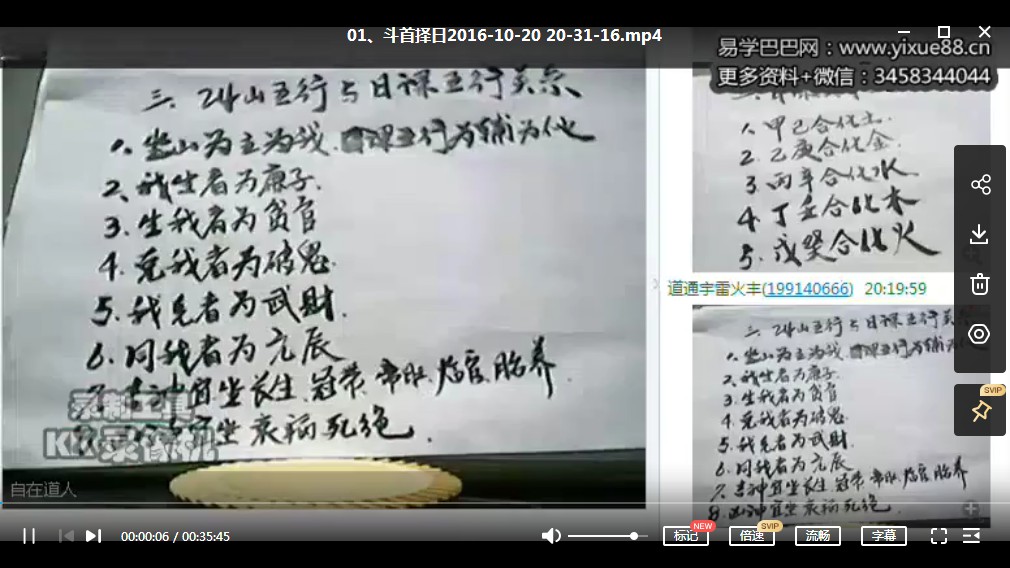 01、斗首择日2016-10-20 20-31-16.mp4
易学巴巴网：www.yixue88.cn
更多资料+微信：3458344044
三、24山五行与日课五行关系
1、坐山为主为我，日课五行为辅为他
2、我生者为廉子.
3、生我者为贪官
4、克我者为破鬼.
5、我克者为武财.
6、同我者为元辰
吉神宜坐长生、冠带、帝旺、临官、胎养.
坐衰病死绝.
录制工具
KK录像机
自在道人
1、甲己合化土.
2、乙庚合化金.
3、丙辛合化水
4、丁壬合化木
5、戊癸合化火
道通宇雷火丰(199140666) 20:19:59
三、24山五行与日课五行关系
1、坐山为主为我，日课五行为辅
2、我生者为廉子.
3、生我者为贪官
4、克我者为破鬼.
5、我克者为武财.
6、同我者为元辰
7、吉神宜坐长生、冠带、帝旺、临官、胎养
8、凶神宜坐衰病死绝.
SVIP
00:00:06 / 00:35:45
标记
NEW
倍速
SVIP
流畅
字幕